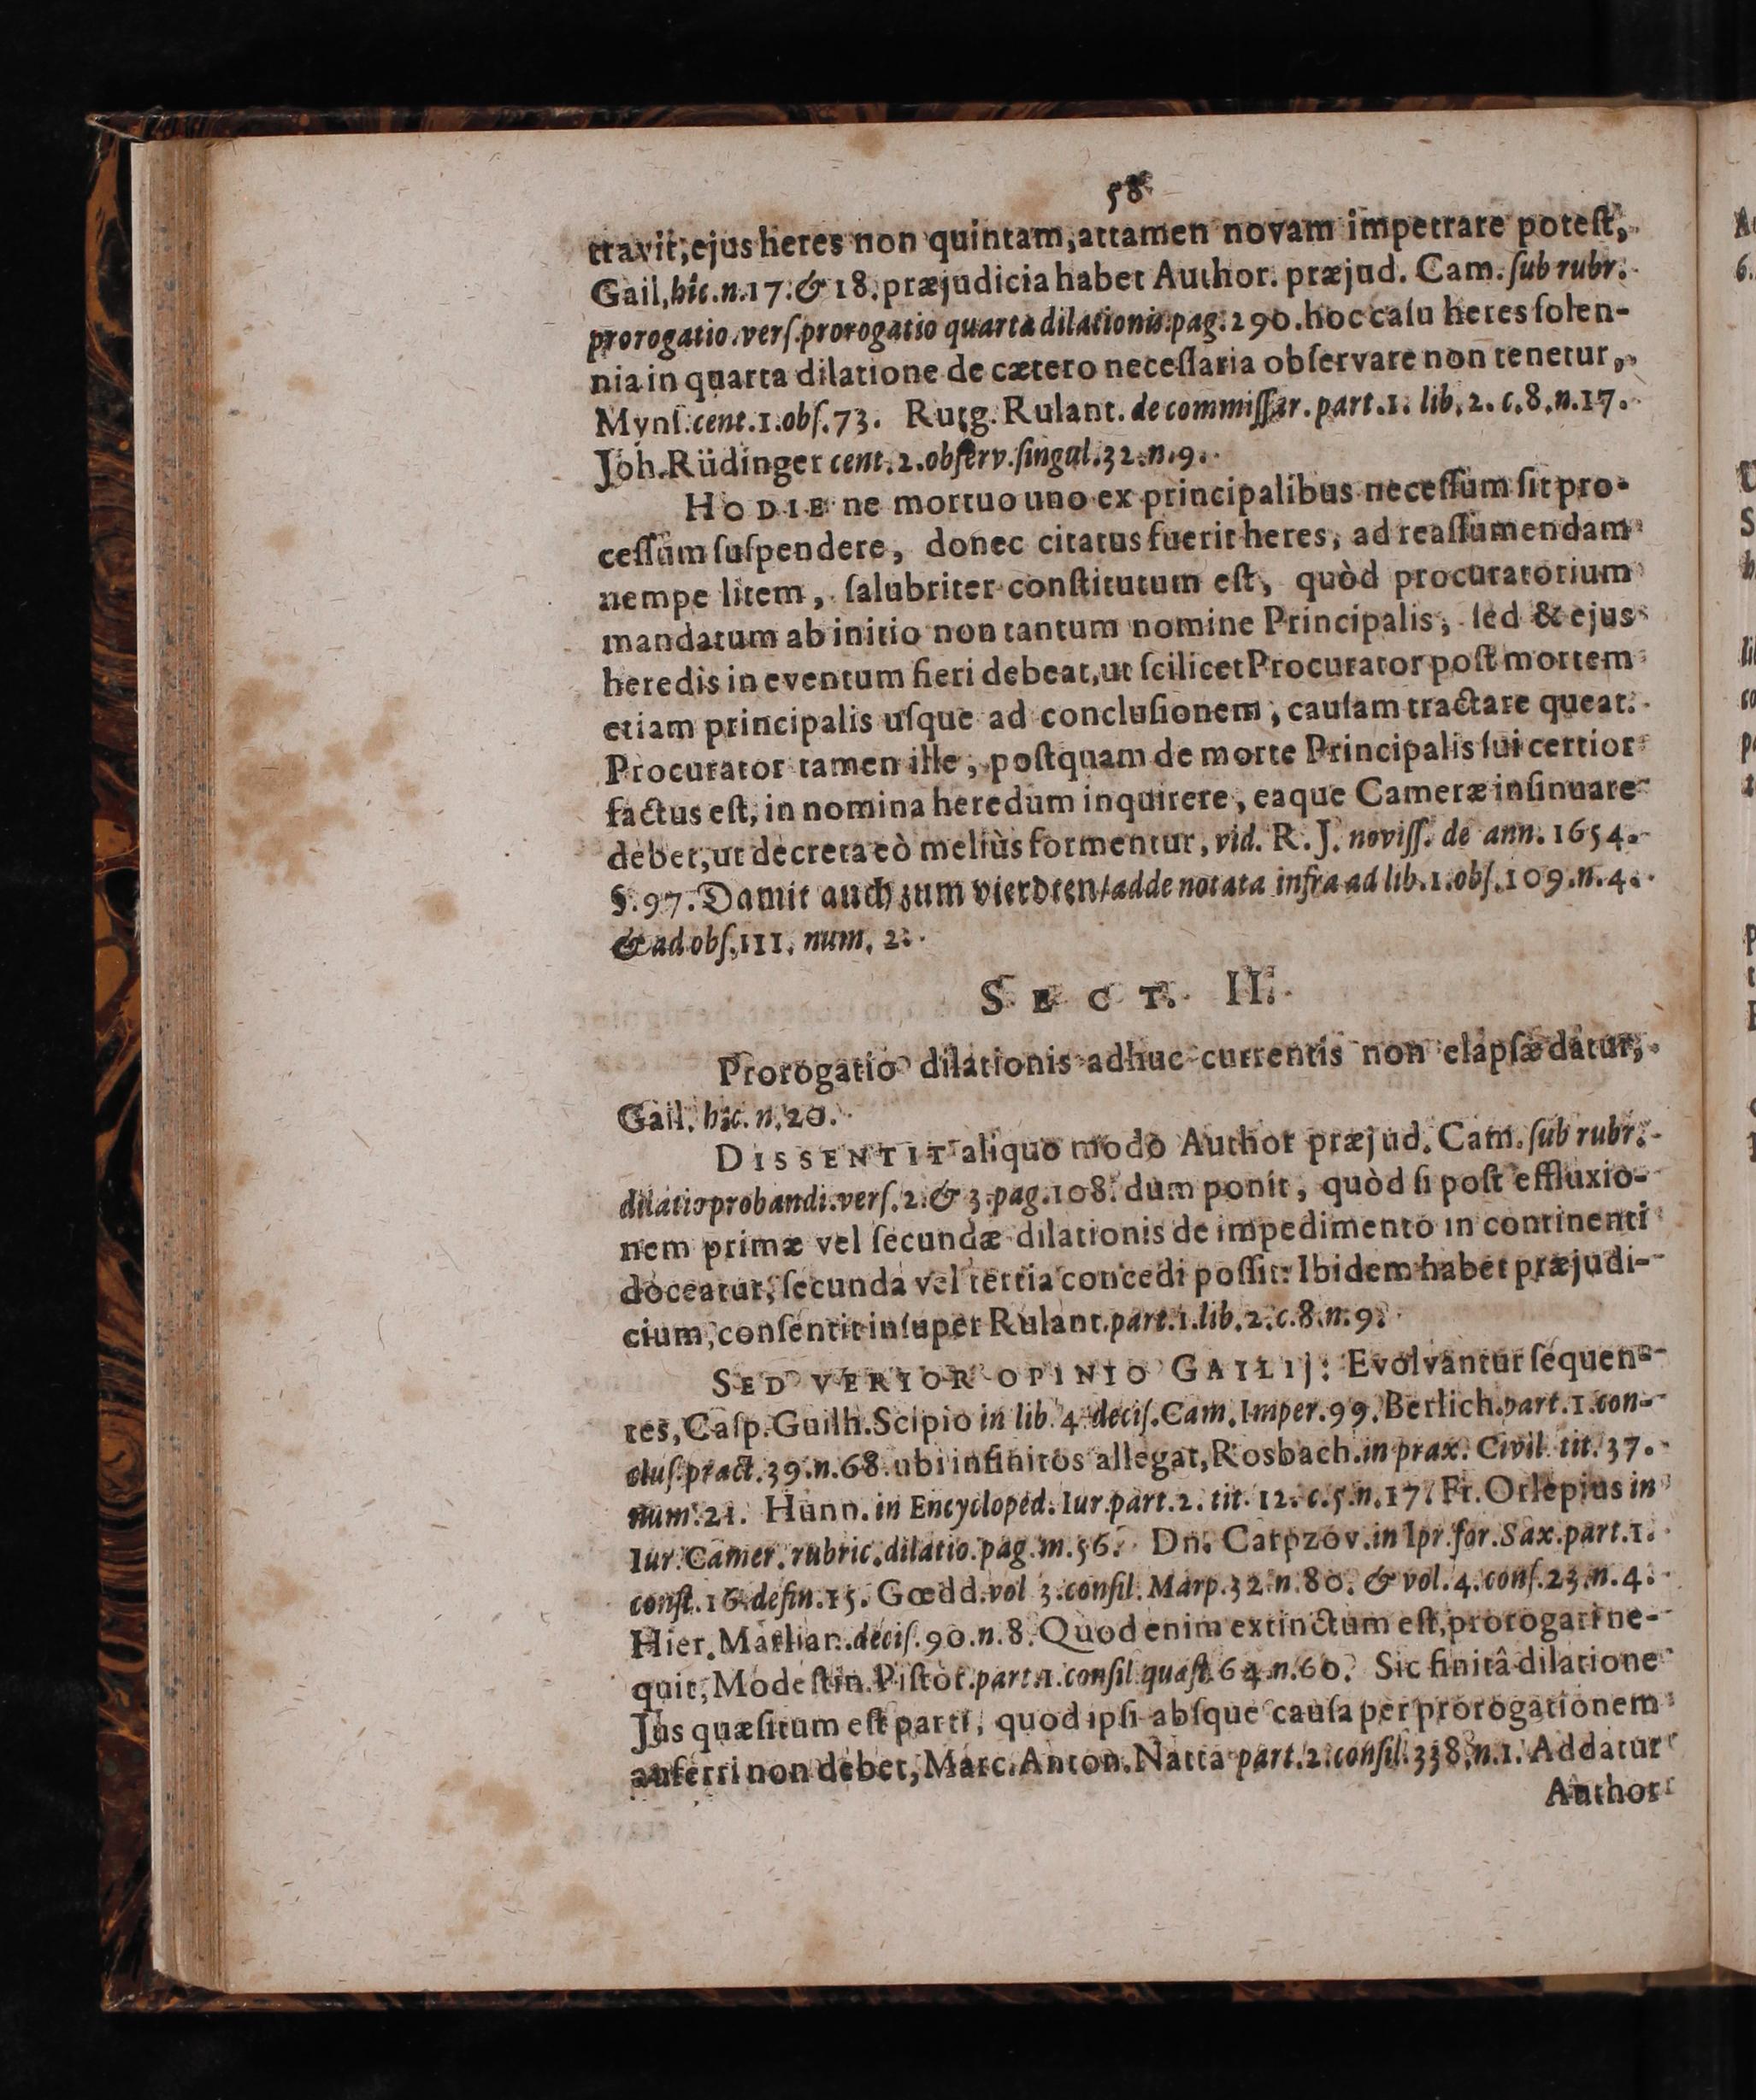 58
travit, ejus heres non quintam, attamen novam impetrare poteſt,
Gail, hîc. n. 17. & 18. præjudicia habet Author. præjud. Cam. ſub rubr.
prorogatio. verſ. prorogatio quarta dilationis. pag. 290. hoc caſu heres ſolen-
nia in quarta dilatione de cætero neceſſaria obſervare non tenetur,
Mynſ. cent. 1. obſ. 73. Rutg. Rulant. de commiſſar. part. 1. lib. 2. c. 8. n. 17.
Joh. Rüdinger cent. 2. obſerv. ſingul. 32. n. 9.
HODIE ne mortuo uno ex principalibus neceſſum ſit pro-
ceſſum ſuſpendere, donec citatus fuerit heres, ad reaſſumendam
nempe litem, ſalubriter conſtitutum eſt, quòd procuratorium
mandatum ab initio non tantum nomine Principalis, ſed & ejus
heredis in eventum fieri debeat, ut ſcilicet Procurator poſt mortem
etiam principalis uſque ad concluſionem, cauſam tractare queat.
Procurator tamen ille, poſtquam de morte Principalis ſui certior
factus eſt, in nomina heredum inquirere, eaque Cameræ inſinuare
debet, ut decreta eò meliùs formentur, vid. R. J. noviſſ. de ann. 1654.
§. 97. Damit auch zum vierdten/ adde notata infra ad lib. 1. obſ. 109. n. 4.
& ad obſ. 111. num. 2.
SECT. II.
Prorogatio dilationis adhuc currentis non elapſæ datur,
Gail. hîc. n. 20.
DISSENTIT aliquo modo Author præjud. Cam. ſub rubr.
dilatio probandi. verſ. 2. & 3. pag. 108. dum ponit, quòd ſi poſt effluxio-
nem primæ vel ſecundæ dilationis de impedimento in continenti
doceatur, ſecunda vel tertia concedi poſſit: Ibidem habet præjudi-
cium, conſentit inſuper Rulant. part. 1. lib. 2. c. 8. n. 9.
SED VERIOR OPINIO GAILIJ: Evolvantur ſequen-
tes, Caſp. Guilh. Scipio in lib. 4. deciſ. Cam. Imper. 99. Berlich. part. 1. con-
cluſ. pract. 39. n. 68. ubi infinitos allegat, Rosbach. in prax. Civil. tit. 37.
num. 21. Hunn. in Encycloped. Iur. part. 2. tit. 12. c. 5. n. 17. Fr. Orlepius in
Iur. Camer. rubric. dilatio. pag. m. 56. Dn. Carpzov. in Ipr. for. Sax. part. 1.
conſt. 16. defin. 15. Gœdd. vol 3. conſil. Marp. 32. n. 80. & vol. 4. conſ. 23. n. 4.
Hier. Marlian. deciſ. 90. n. 8. Quod enim extinctum eſt, prorogari ne-
quit, Modeſtin. Piſtor. part. 1. conſil. quæſt. 64. n. 60. Sic finitâ dilatione
Jus quæſitum eſt parti, quod ipſi abſque cauſa per prorogationem
auferri non debet, Marc. Anton. Natta part. 2. conſil. 338. n. 1. Addatur
Author